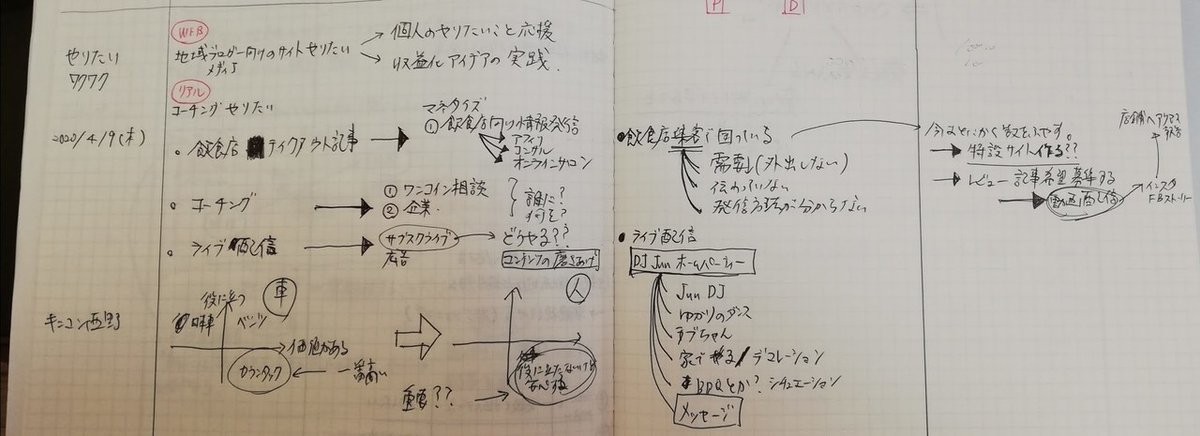 やりたい
ワクワク
WEB
地域ブロガー向けのサイトやりたい
メディア
個人のやりたいこと応援
収益化アイデアの実践
リアル
コーチングやりたい
2020/4/9(木)
・飲食店 テイクアウト記事
マネタイズ
①飲食店向け情報発信
アフィ
コンサル
オンラインサロン
・コーチング
①ワンコイン相談
②企業
誰に?
何を?
・ライブ配信
サブスクライブ
広告
どうやる??
コンテンツの磨きあげ
キンコン西野
役に立つ
車
日本車
ベンツ
価値がある
カウンタック
一番高い
人
重要??
役に立たないけど
P
D
・飲食店集客で困っている
需要(外出しない)
伝わっていない
発信方法が分からない
・ライブ配信
DJ Jun ホームパーティー
Jun DJ
ゆかりのダンス
デブちゃん
家でやる/デコレーション
BBQとか?シチュエーション
メッセージ
今はとにかく数をふやす。
特設サイト作る??
レビュー記事希望募集する
動画配信
インスタ
FBストーリー
店舗へアクセス